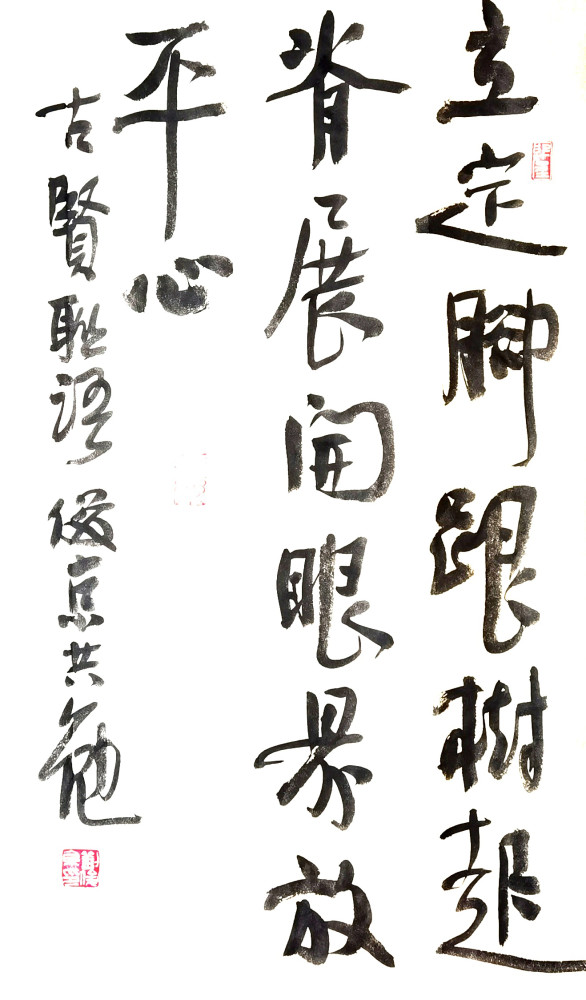 立定脚跟树起
脊展开眼界放
平心
古賢联语俊京共勉